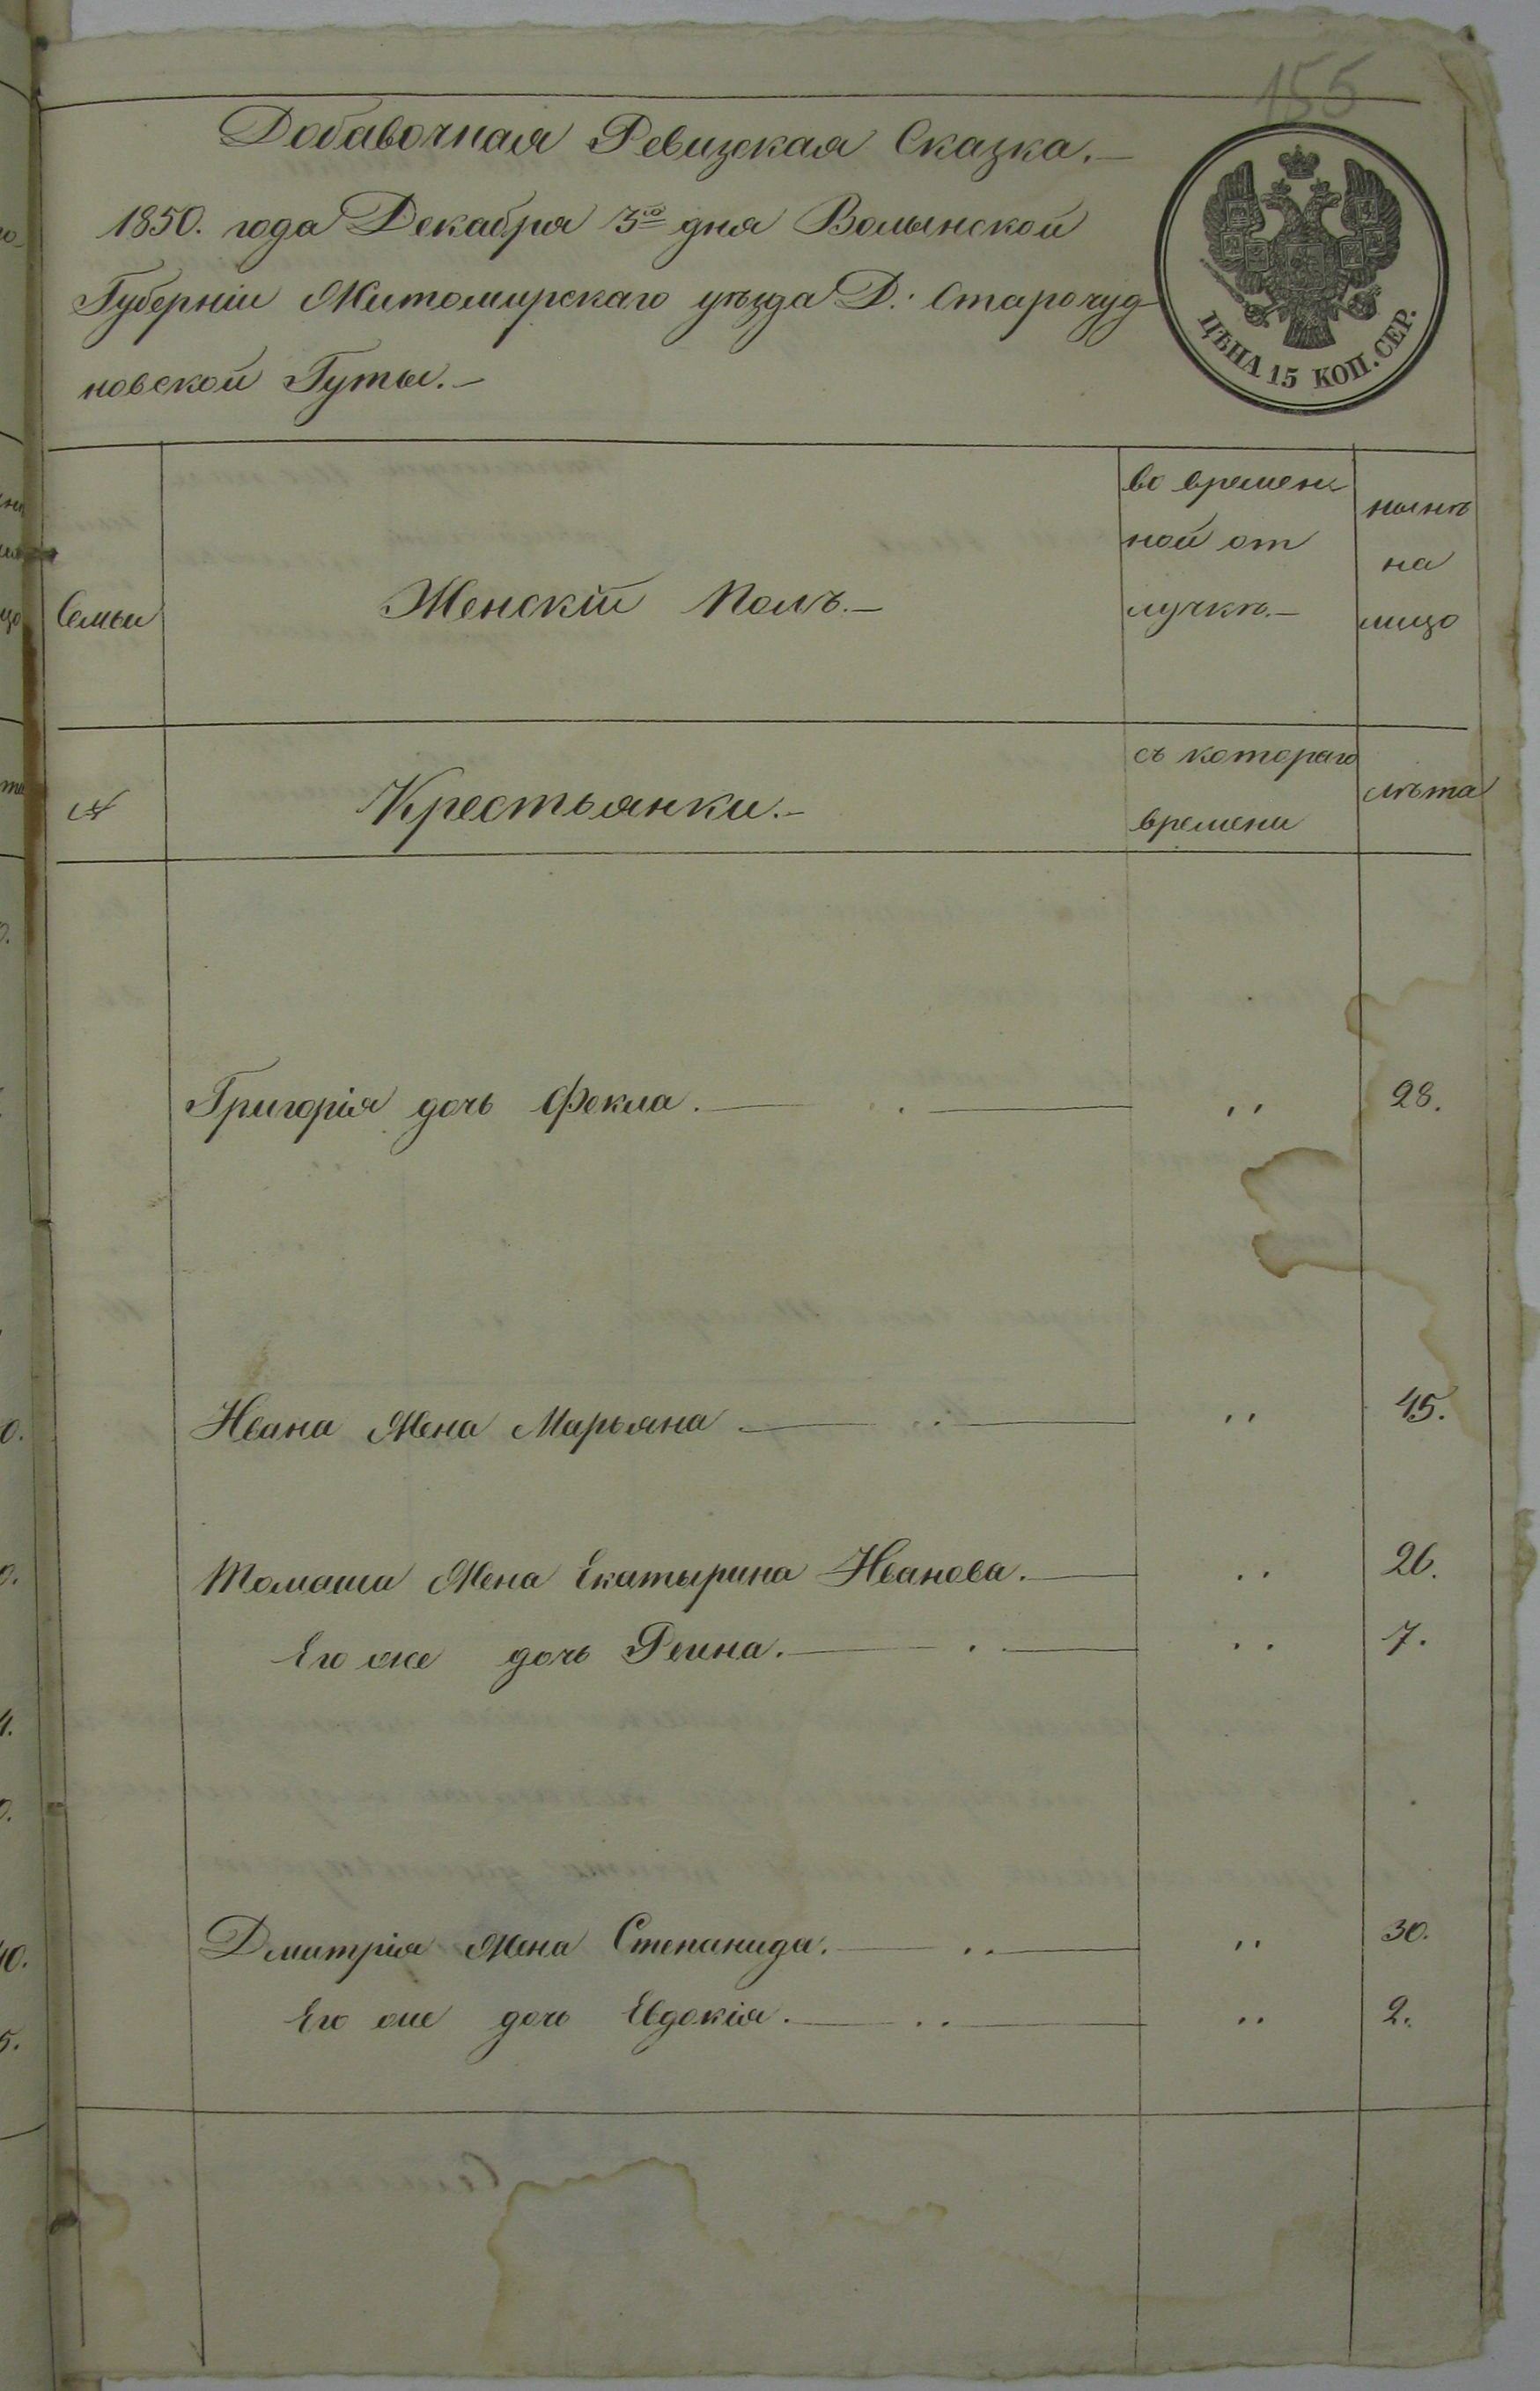 155
Добавочная Ревизская Сказка.—
1850. года Декабря 3го дня Волынской
Губерніи Житомирскаго уѣзда Д. Старочуд
новской Гуты.—
ЦѢНА 15 КОП. СЕР.
Семьи
Женскій Полъ.—
во времен
ной от
лучкѣ.—
нынѣ
на
лицо
№
Крестьянки.—
съ котораго
времени
лѣта
Григорія дочь Фекла. — . — ,, 28.
Ивана Жена Марьяна — .. — ,, 45.
Томаша Жена Екатырина Иванова. — .. 26.
Его же дочь Регина. — . — .. 7.
Дмитрія Жена Степанида. — .. — ,, 30.
Его же дочь Евдокія. — .. — .. 2.